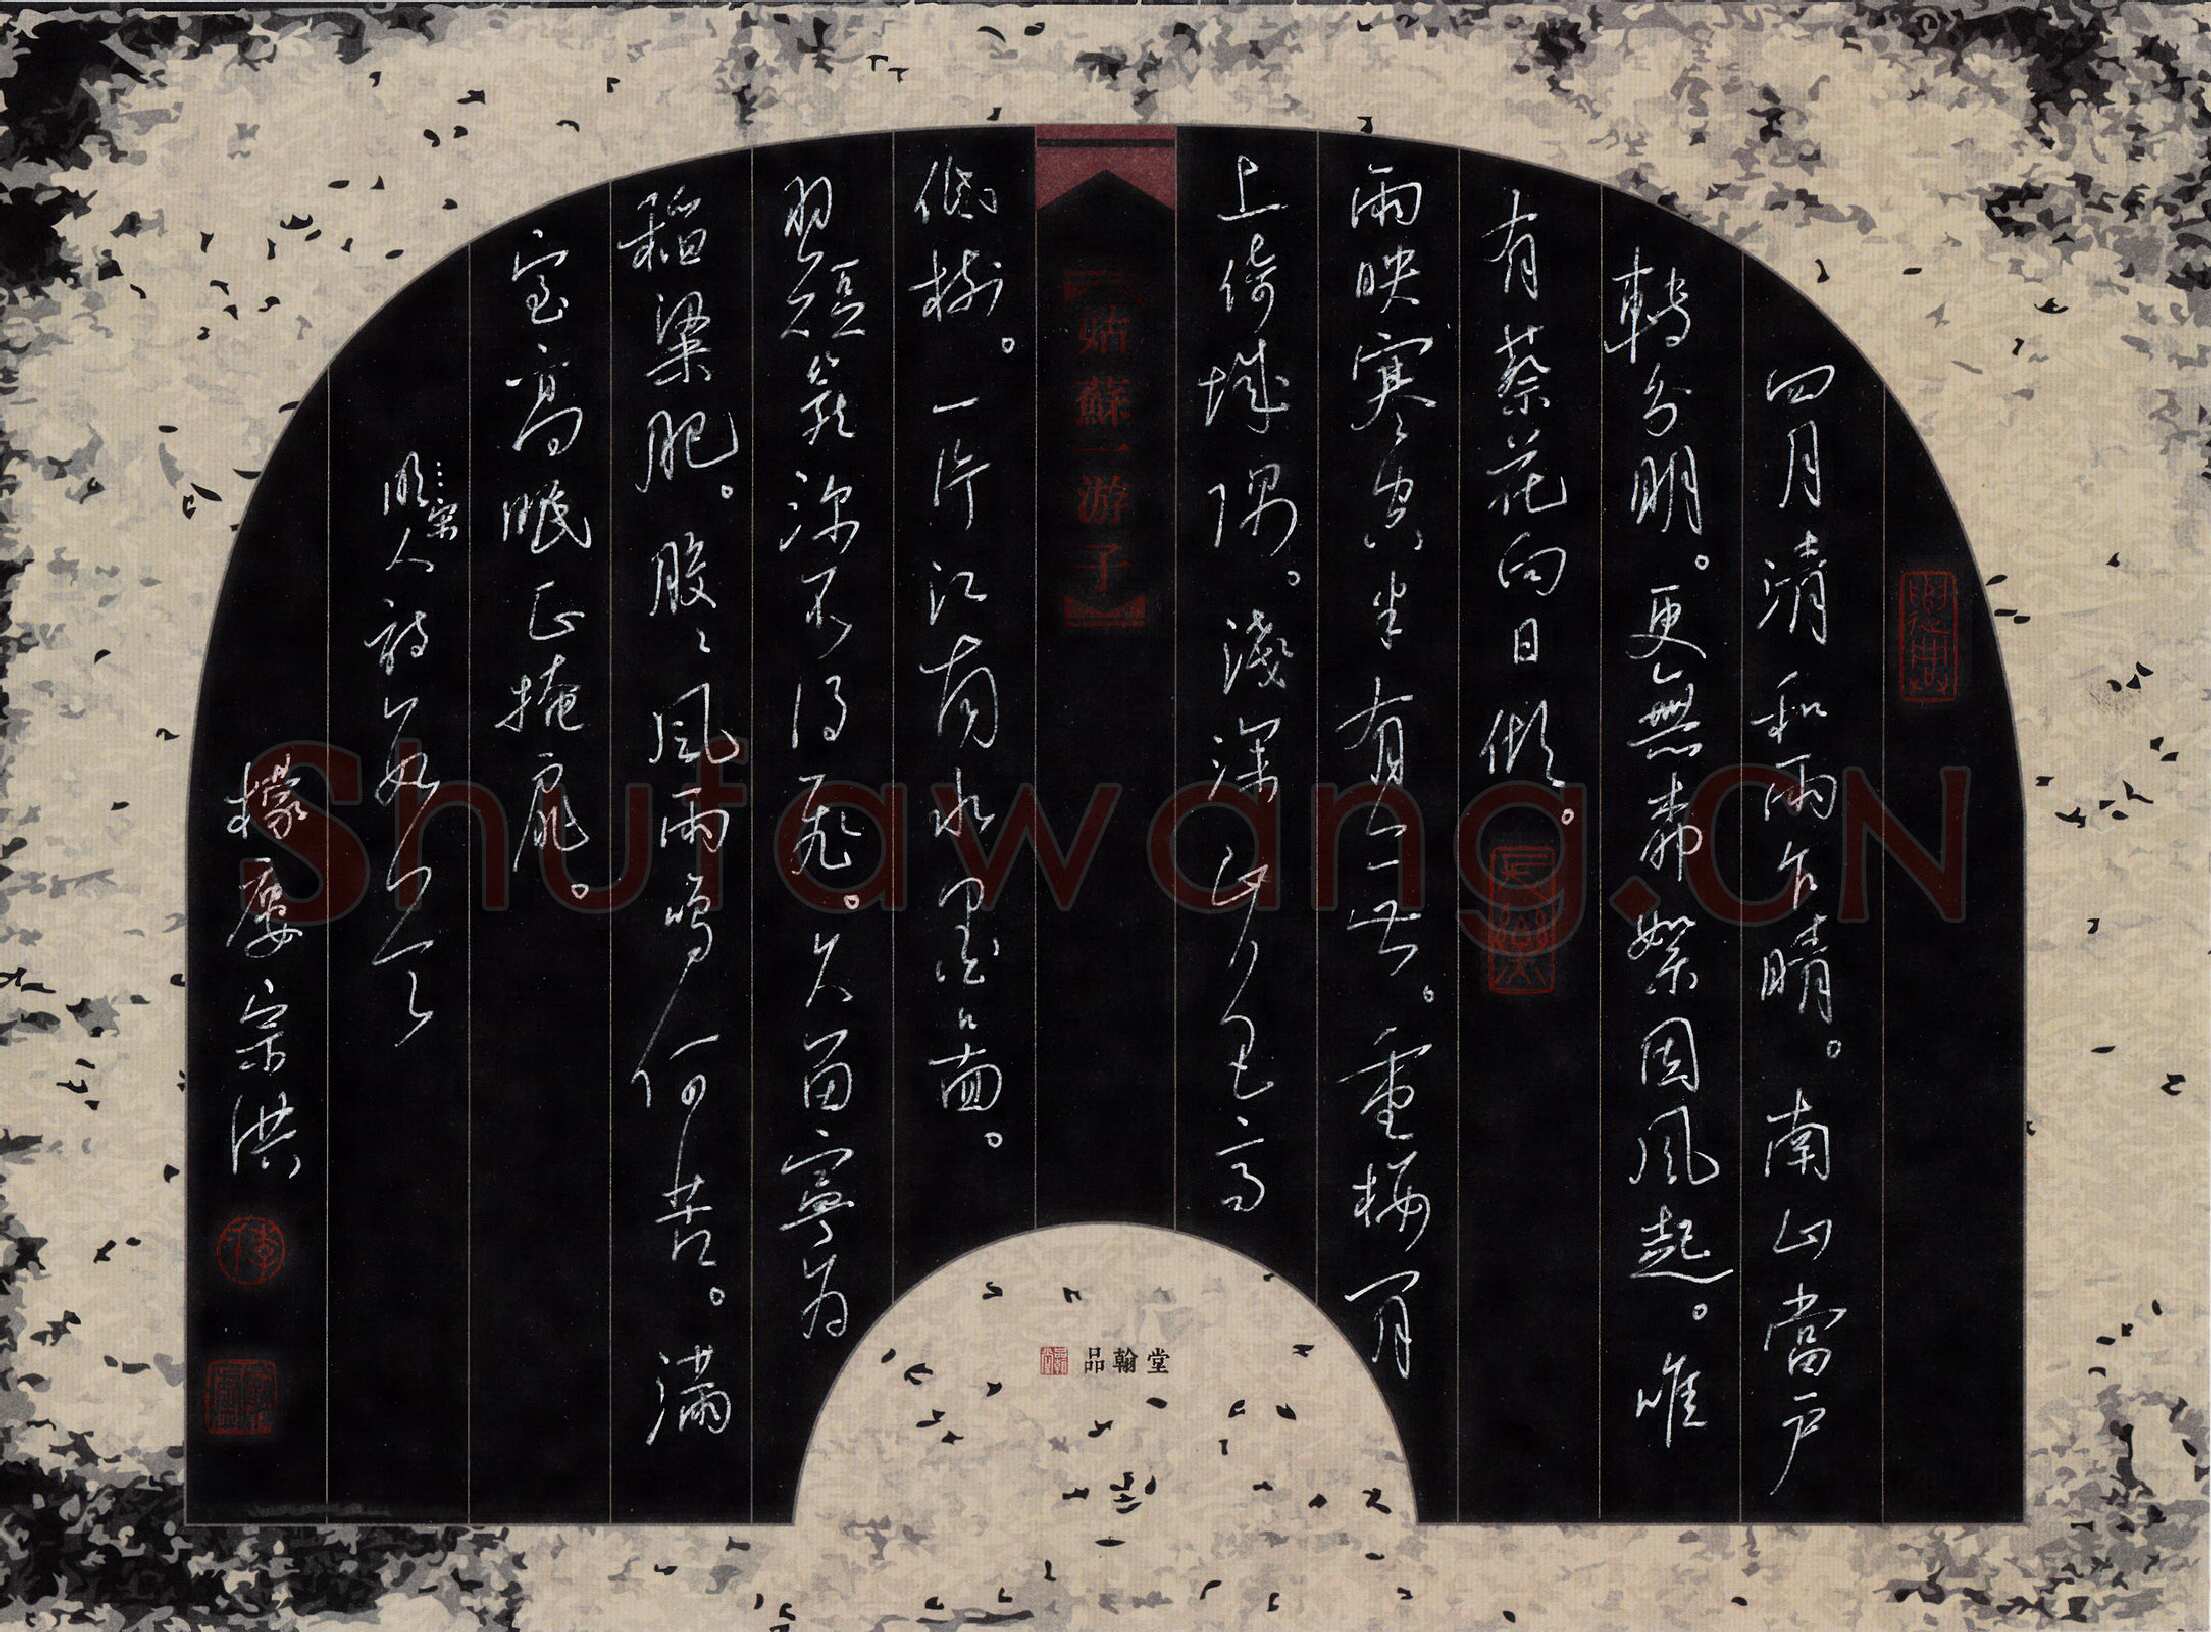 四月清和雨乍晴。南山當戶
轉分明。更無柳絮因風起。唯
有葵花向日傾。
雨映寒空半有無。重樓閒
上倚城隅。淺深山色高
姑蘇一游子
低樹。一片江南水墨圖。
翅短籠深不得飛。久留寧為
稻粱肥。膠々風雨鳴何苦。滿
室高眠正掩扉。
宋人詩
檬廔宗洪
品翰堂
Shufawang.CN